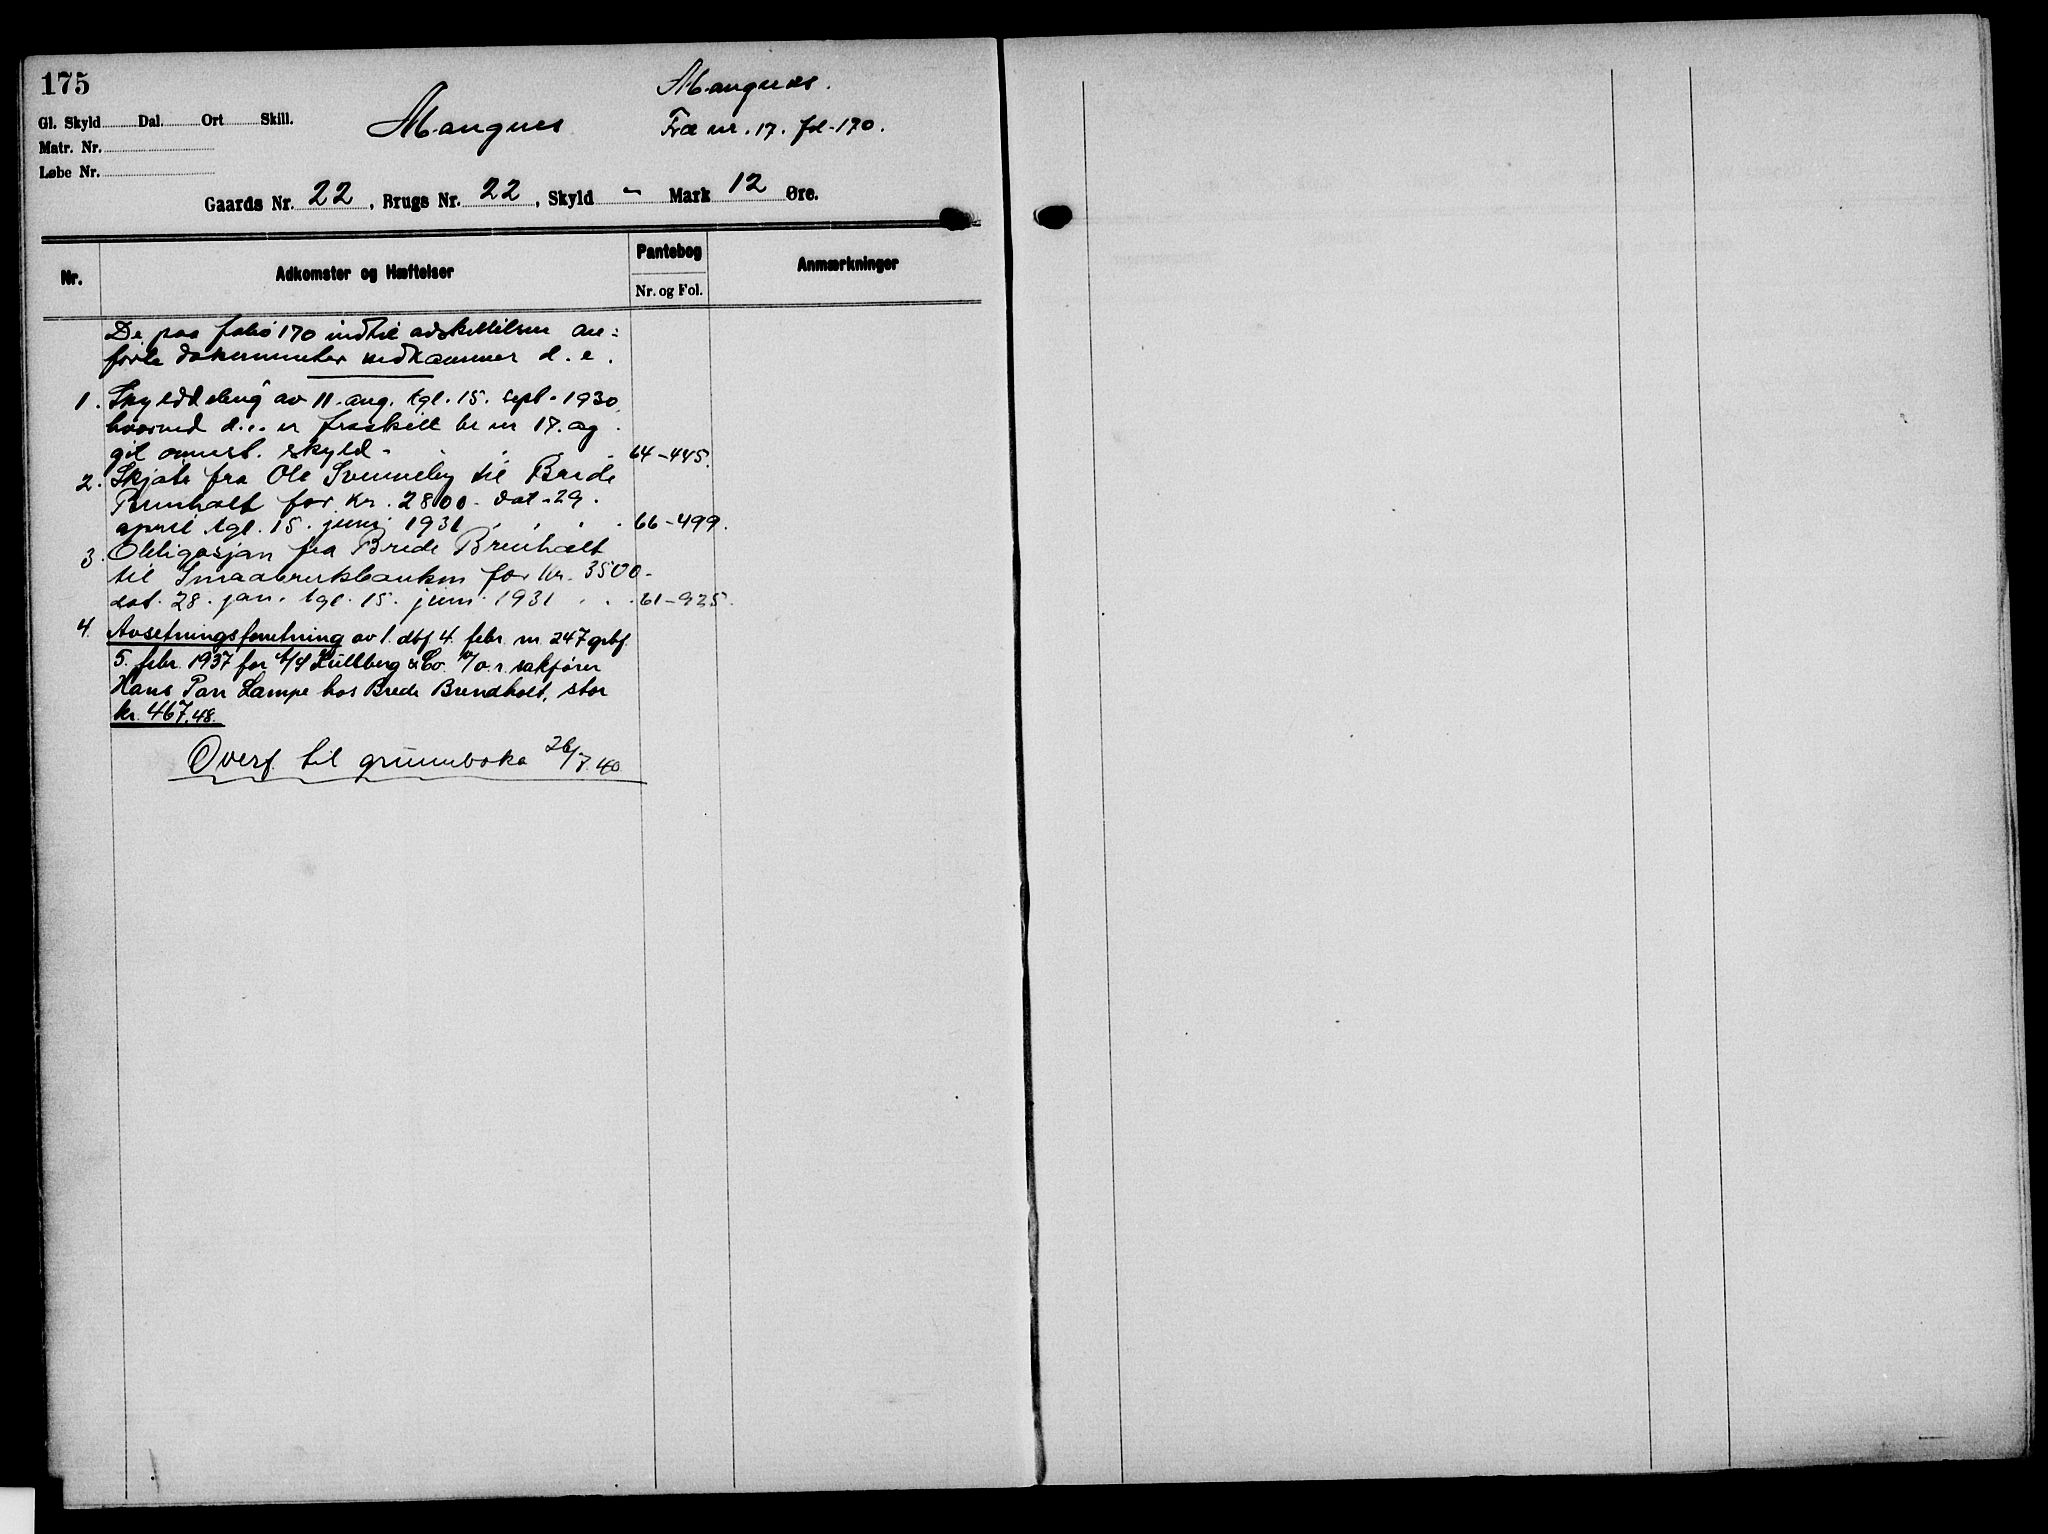 175
Mangnes.
Gl. Skyld Dal. Ort Skill.
Mangnes
Fra nr. 17. fol. 170.
Matr. Nr.
Løbe Nr.
Gaards Nr. 22, Brugs Nr. 22, Skyld - Mark 12 Øre.
Nr.
Adkomster og Hæftelser
Pantebog
Nr. og Fol.
Anmærkninger
De paa folio 170 indtil adskillelsen an=
førte dokumenter vedkommer d. e.
1. Skylddeling av 11. aug. tgl. 15. sept. 1930
hvorved d.e. er fraskilt br nr 17. og
git anført. skyld. 64-445.
2. Skjøte fra Ole Svenneby til Brede
Brenholt for kr. 2800. dat. 29.
april tgl. 15. juni 1931 66-499.
3. Obligasjon fra Brede Brenholt
til Smaabrukbanken for kr. 3500.
dat. 28. jan. tgl. 15. juni 1931 61-925.
4. Avsetningsforretning av l. dbf 4. febr. nr. 247 grbf.
5. febr. 1937 for A/S Lullberg & Co. v/o.r. sakfører
Hans Parr Lampe hos Brede Brendholt, stor
kr. 467.48.
Overf. til grunnboka 26/7.40